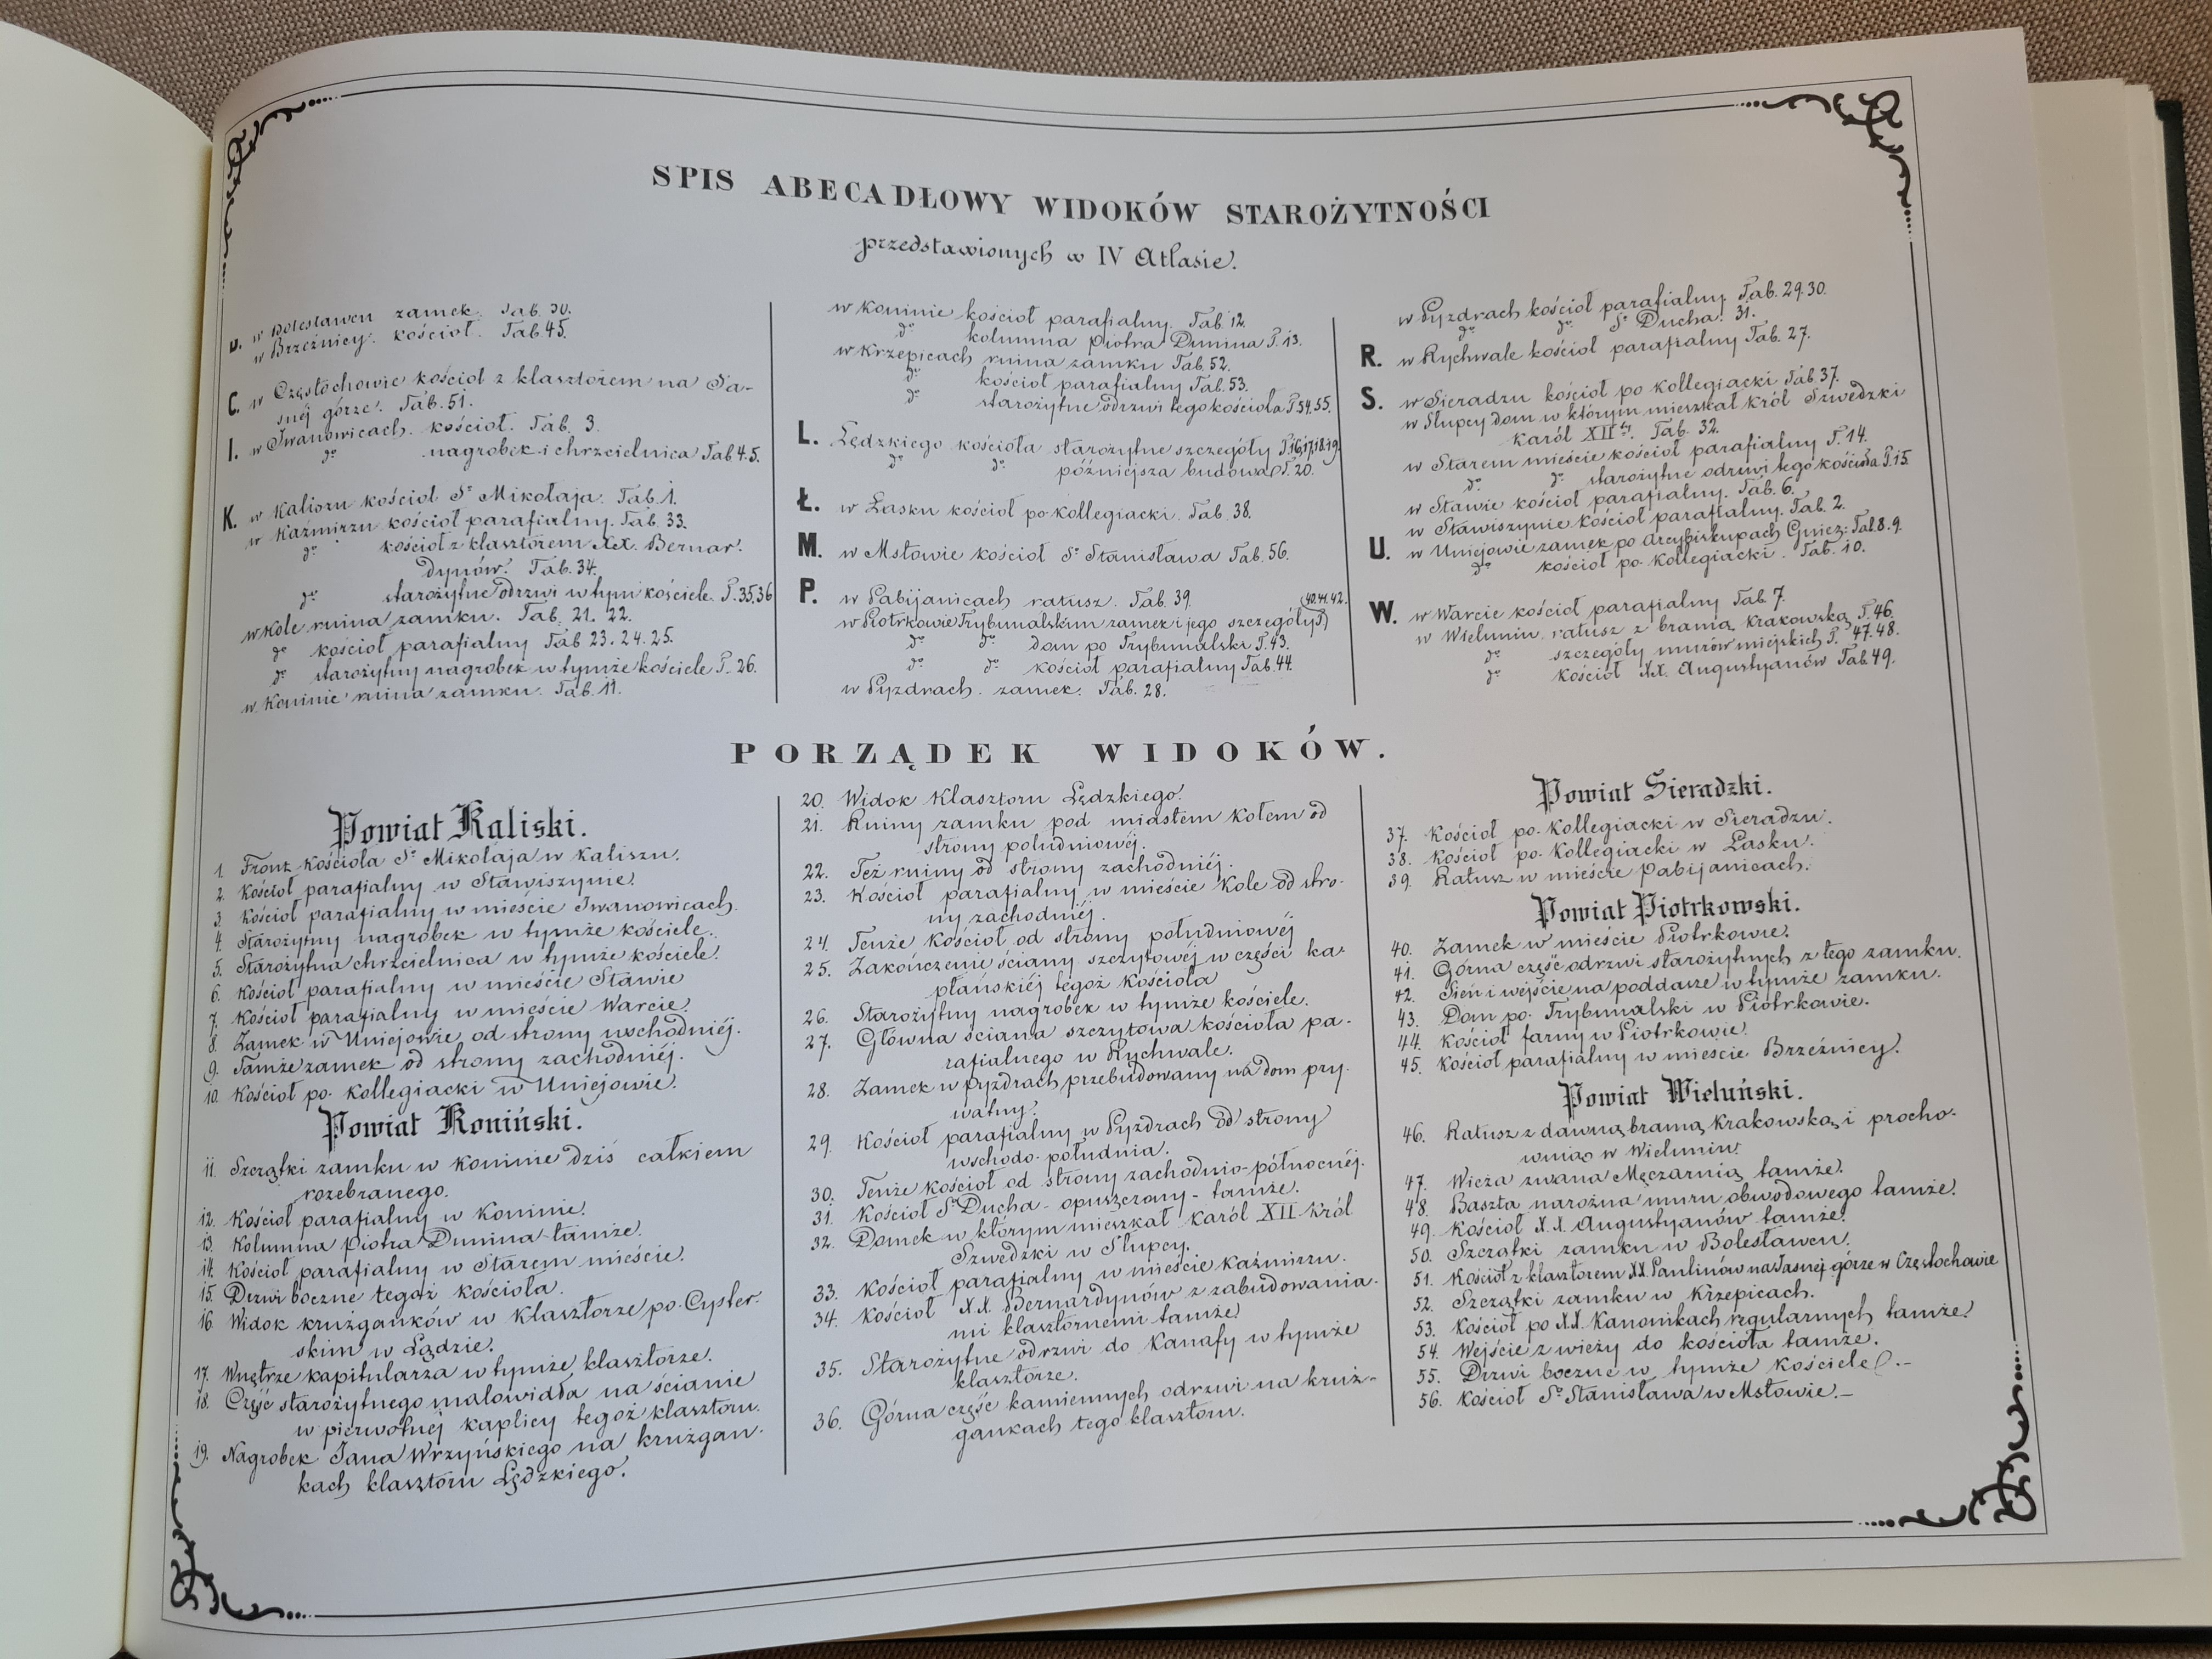 SPIS ABECADŁOWY WIDOKÓW STAROŻYTNOŚCI
przedstawionych w IV Atlasie.
B. w Bolesławcu zamek. Tab. 50.
w Brzeźnicy. kościoł. Tab. 45.
C. w Częstochowie kościoł z klasztorem na Ja-
snéj górze. Tab. 51.
I. w Iwanowicach. kościoł. Tab. 3.
do nagrobek i chrzcielnica Tab 4.5.
K. w Kaliszu kościoł So Mikołaja. Tab. 1.
w Kaźmirzu kościoł parafialny. Tab. 33.
do kościoł z klasztorem XX. Bernar.
dynów. Tab. 34.
do starożytne odrzwi w tym kościele. T. 35.36
w Kole ruina zamku. Tab. 21. 22.
do kościoł parafialny Tab 23. 24. 25.
do starożytny nagrobek w tymże kościele T. 26.
w Koninie ruina zamku. Tab. 11.
w Koninie kościoł parafialny. Tab. 12.
do kolumna Piotra Dunina T. 13.
w Krzepicach ruina zamku Tab. 52.
do kościoł parafialny Tab. 53.
do starożytne odrzwi tego kościoła T. 54. 55.
L. Lędzkiego kościoła starożytne szczegóły T. 16,17,18.19.
do do późniejsza budowa T. 20.
Ł. w Łasku kościoł po kollegiacki. Tab. 38.
M. w Mstowie kościoł So Stanisława Tab. 56.
P. w Pabijanicach ratusz. Tab. 39.
w Piotrkowie Trybunalskim zamek i jego szczegóły T) (40.41.42.
do do dom po Trybunalski T. 43.
do do kościoł parafialny Tab. 44
w Pyzdrach. zamek. Tab. 28.
w Pyzdrach kościoł parafialny Tab. 29.30.
do do So Ducha. 31.
R. w Rychwale kościoł parafialny Tab. 27.
S. w Sieradzu kościoł po kollegiacki Tab. 37.
w Słupcy dom w którym mieszkał król Szwedzki
Karól XIIty. Tab. 32.
w Starem mieście kościoł parafialny T. 14.
do do starożytne odrzwi tego kościoła T. 15.
w Stawie kościoł parafialny. Tab. 6.
w Stawiszynie kościoł parafialny. Tab. 2.
U. w Uniejowie zamek po Arcybiskupach Gniez: Tab. 8. 9.
do kościoł po-kollegiacki. Tab. 10.
W. w Warcie kościoł parafialny Tab. 7.
w Wieluniu. ratusz z bramą krakowską T. 46.
do szczegóły murów miejskich T. 47. 48.
do kościoł XX. Augustyanów Tab. 49.
PORZĄDEK WIDOKÓW.
Powiat Kaliski.
1 Front Kościoła So Mikołaja w Kaliszu.
2. Kościoł parafialny w Stawiszynie.
3. Kościoł parafialny w mieście Iwanowicach.
4. Starożytny nagrobek w tymże kościele.
5. Starożytna chrzcielnica w tymże kościele.
6. Kościoł parafialny w mieście Stawie
7. Kościoł parafialny w mieście Warcie.
8. Zamek w Uniejowie od strony wschodniéj.
9. Tamże zamek od strony zachodniéj.
10. Kościoł po-kollegiacki w Uniejowie.
Powiat Koniński.
11. Szczątki zamku w Koninie dziś całkiem
rozebranego.
12. Kościoł parafialny w Koninie.
13. Kolumna Piotra Dunina tamże.
14. Kościoł parafialny w Starem mieście.
15. Drzwi boczne tegoż kościoła.
16. Widok krużganków w klasztorze po-Cyster.
skim w Lądzie.
17. Wnętrze kapitularza w tymże klasztorze.
18. Część starożytnego malowidła na ścianie
w pierwotnéj kaplicy tegoż klasztoru.
19. Nagrobek Jana Wrzyńskiego na krużgan.
kach klasztoru Lędzkiego.
20. Widok Klasztoru Lędzkiego.
21. Ruiny zamku pod miastem Kołem od
strony południowéj.
22. Też ruiny od strony zachodniéj.
23. Kościoł parafialny w mieście Kole od stro.
ny zachodniéj.
24. Tenże Kościoł od strony południowéj
25. Zakończenie ściany szczytowéj w części ka-
płańskiéj tegoż kościoła
26. Starożytny nagrobek w tymże kościele.
27. Główna ściana szczytowa kościoła pa-
rafialnego w Rychwale.
28. Zamek w Pyzdrach przebudowany na dom pry.
watny.
29. Kościoł parafialny w Pyzdrach od strony
wschodo-południa.
30. Tenże kościoł od strony zachodnio-północnéj.
31. Kościoł So Ducha - opuszczony - tamże.
32. Domek w którym mieszkał Karól XII król
Szwedzki w Słupcy.
33. Kościoł parafialny w mieście Kaźmirzu.
34. Kościoł XX. Bernardynów z zabudowania-
mi klasztornemi tamże.
35. Starożytne odrzwi do Kanafy w tymże
klasztorze.
36. Górna część kamiennych odrzwi na kruż-
gankach tego klasztoru.
Powiat Sieradzki.
37. Kościoł po-kollegiacki w Sieradzu.
38. Kościoł po-kollegiacki w Łasku.
39. Ratusz w mieście Pabijanicach.
Powiat Piotrkowski.
40. Zamek w mieście Piotrkowie.
41. Górna część odrzwi starożytnych z tego zamku.
42. Sień i wejście na poddasze w tymże zamku.
43. Dom po-Trybunalski w Piotrkowie.
44. Kościoł farny w Piotrkowie.
45. Kościoł parafialny w mieście Brzeźnicy.
Powiat Wieluński.
46. Ratusz z dawną bramą Krakowską i procho-
wnią w Wieluniu.
47. Wieża zwana Męczarnią tamże.
48. Baszta narożna muru obwodowego tamże.
49. Kościoł X.X. Augustyanów tamże.
50. Szczątki zamku w Bolesławcu.
51. Kościoł z klasztorem XX. Paulinów na Jasnéj górze w Częstochowie
52. Szczątki zamku w Krzepicach.
53. Kościoł po XX. Kanonikach regularnych tamże.
54. Wejście z wieży do kościoła tamże.
55. Drzwi boczne w tymże kościele.-
56. Kościoł So Stanisława w Mstowie.-